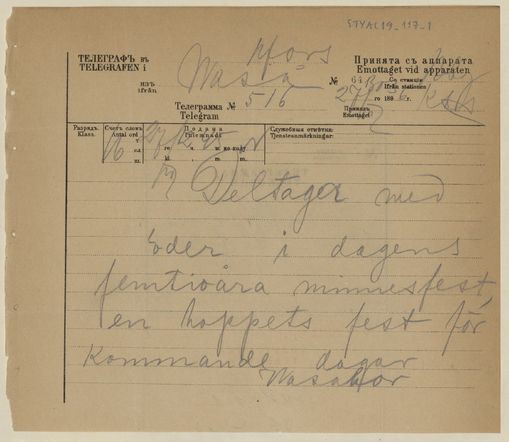 STYAC19_117_1
ТЕЛЕГРАФЪ въ
TELEGRAFEN i
Hfors
Принята съ аппарата
Emottaget vid apparaten
изъ
ifrån
Wasa
№
Со станціи
ifrån stationen
Телеграмма №
Telegram
516
го 189
Принялъ
Emottaget
Разрядъ.
Klass.
Счетъ словъ
Antal ord
16
Подана
Inlemnad
го, ч. м. по полу
kl. m. m.
Служебныя отмѣтки:
Tjensteanmärkningar:
Deltager med
Eder i dagens
femtioåra minnesfest,
en hoppets fest för
kommande dagar
Wasabor